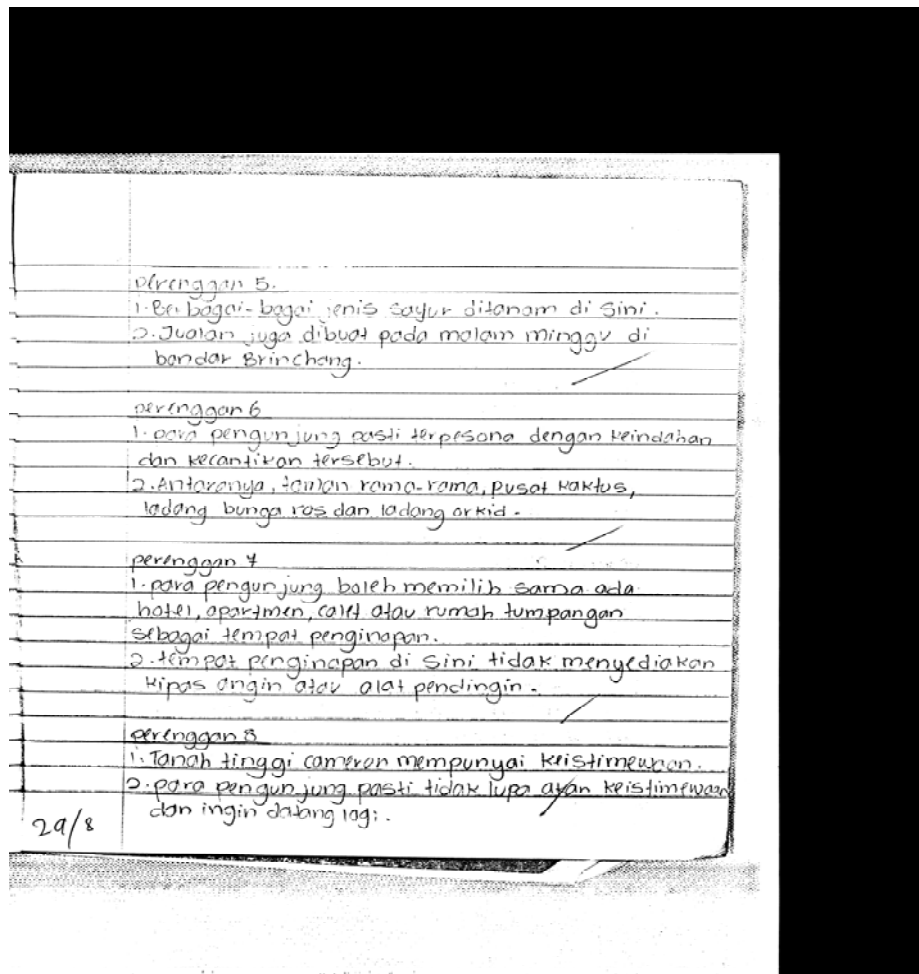 perenggan 5.
1. Berbagai-bagai jenis sayur ditanam di sini.
2. Jualan juga dibuat pada malam minggu di
bandar Brinchang.
perenggan 6
1. para pengunjung pasti terpesona dengan keindahan
dan kecantikan tersebut.
2. Antaranya, taman rama-rama, pusat kaktus,
ladang bunga ros dan ladang orkid.
perenggan 7
1. para pengunjung boleh memilih sama ada
hotel, apartmen, calet atau rumah tumpangan
sebagai tempat penginapan.
2. tempat penginapan di sini tidak menyediakan
kipas angin atau alat pendingin.
perenggan 8
1. Tanah tinggi cameron mempunyai keistimewaan.
2. para pengunjung pasti tidak lupa akan keistimewaan
dan ingin datang lagi.
29/8